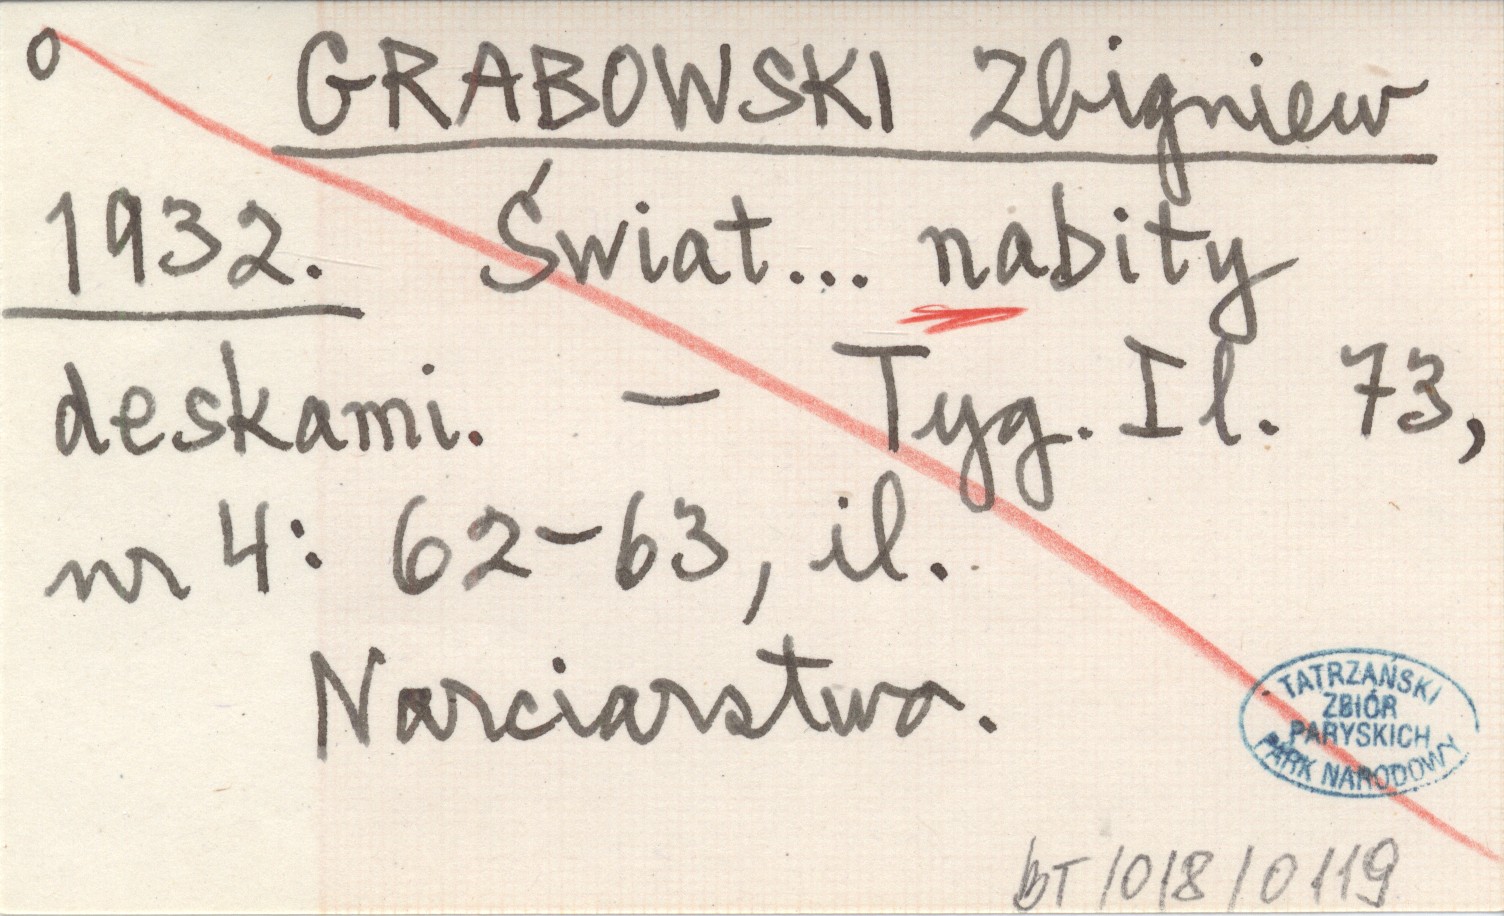 o GRABOWSKI Zbigniew
1932. Świat... nabity
deskami. – Tyg. Il. 73,
nr 4: 62–63, il.
Narciarstwo.
TATRZAŃSKI
ZBIÓR
PARYSKICH
PARK NARODOWY
bT/018/0119